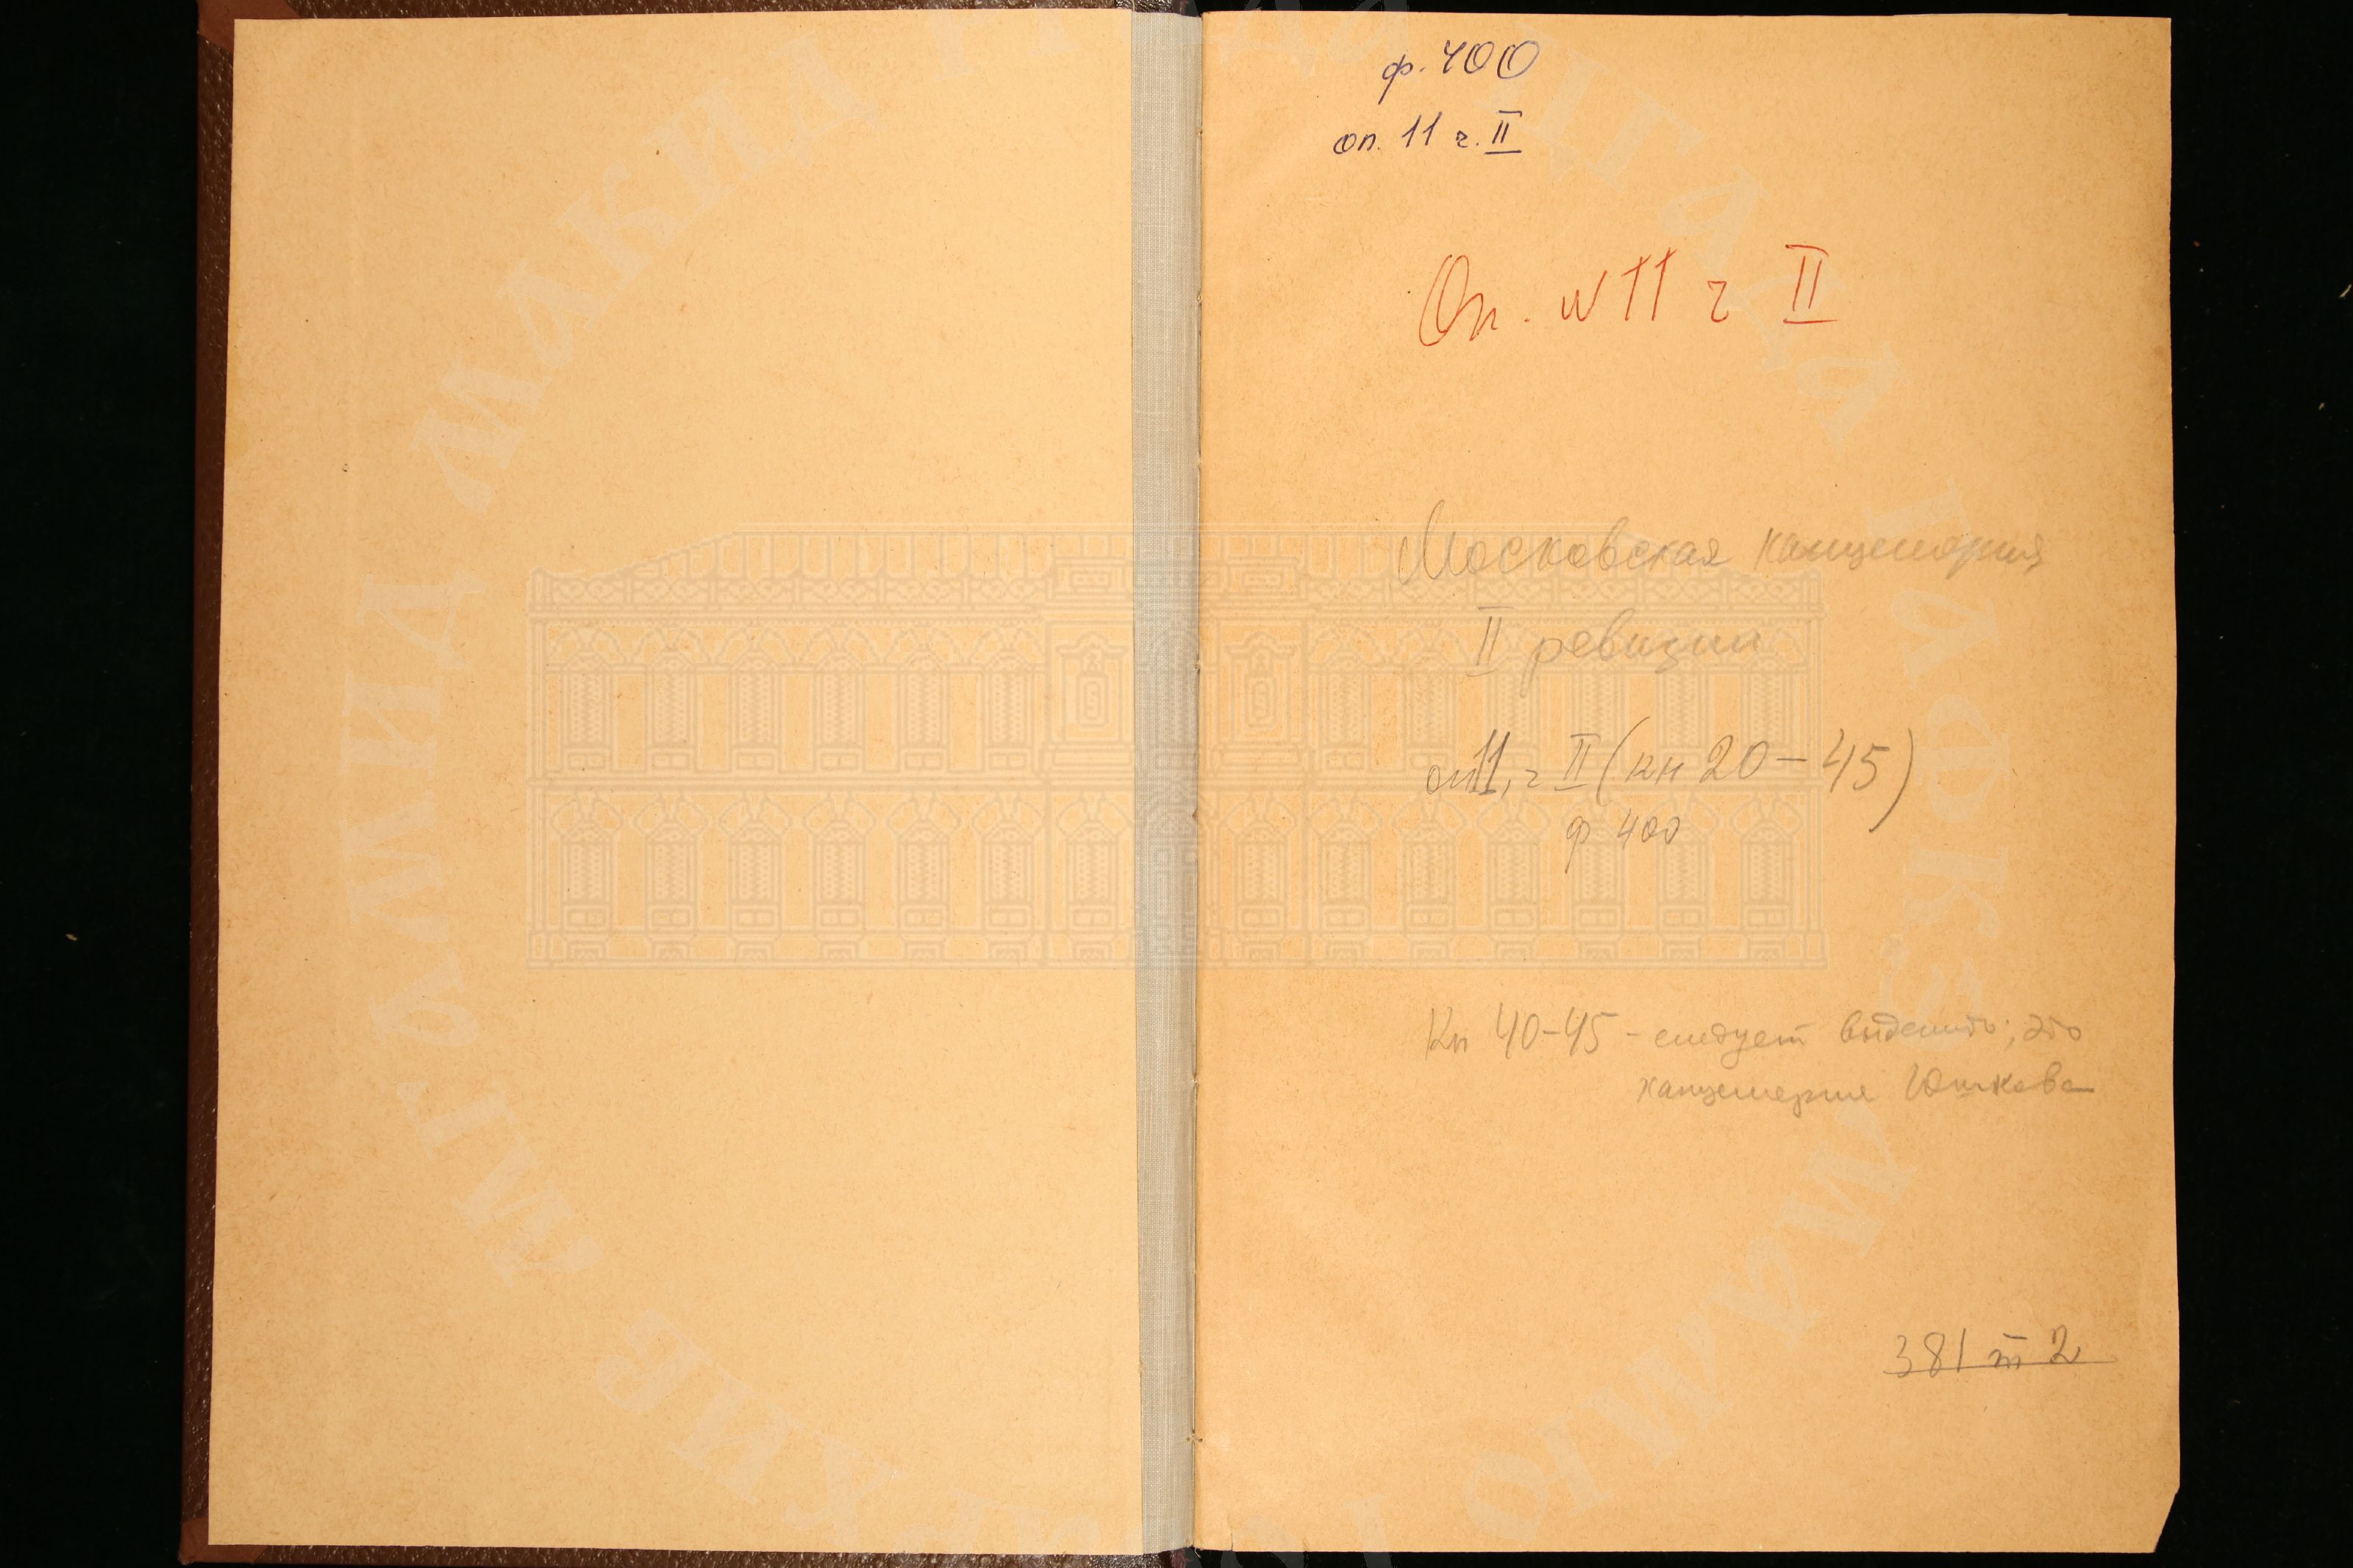 ф. 400
оп. 11 ч. II
Оп. N 11 ч II
Московская канцелярия
II ревизии
оп 11, ч II (кн 20-45)
ф 400
Кн 40-45 - следует выделить; это
канцелярия Юшкова
381 т 2